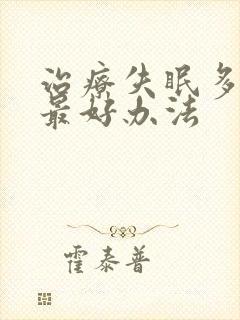 治疗失眠多
最好办法
霍泰普